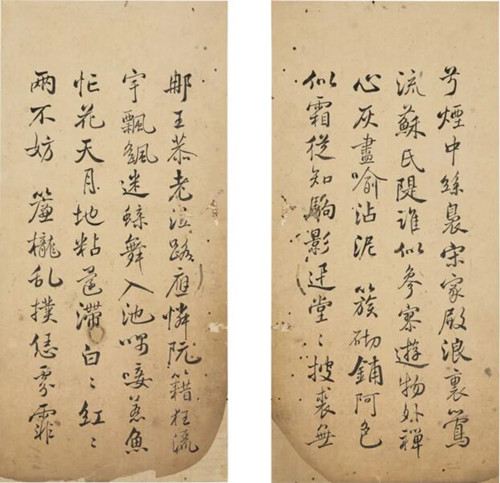 煙中絲裊宋家殿浪裏鶯
流蘇氏隄誰似參寥遊物外禪
心灰盡喻沾泥 簇砌鋪阿色
似霜從知駒影迅堂〻披裘無
那王恭老泣路應憐阮籍狂流
宇飄颻迷蝶舞入池喁唼惹魚
忙花天月地粘滯白〻紅〻
两不妨 簾櫳乱撲恁雰霏